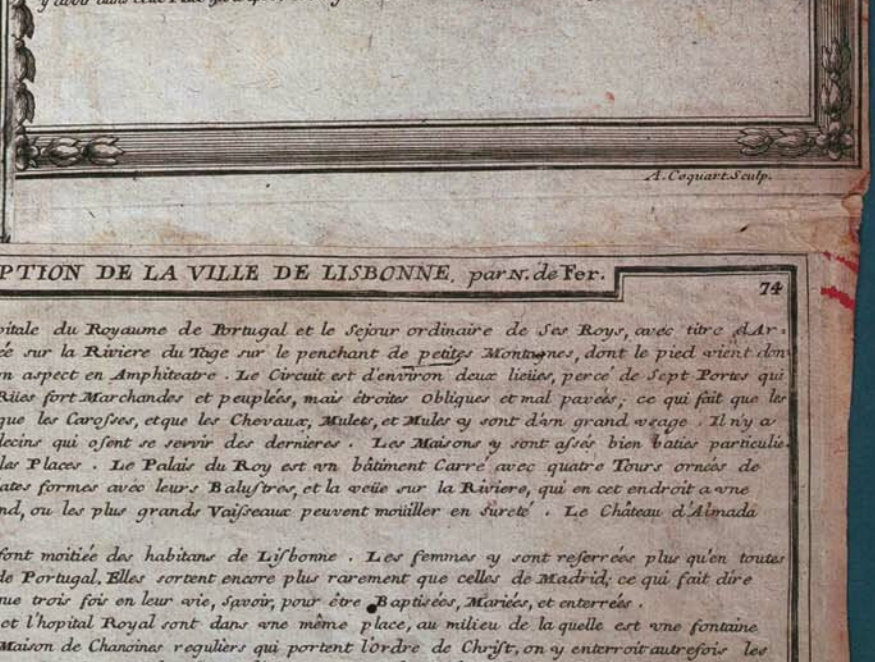 y avoir dans
A. Coquart Sculp.
PTION DE LA VILLE DE LISBONNE, par N. de Fer.
74
pitale du Royaume de Portugal et le Sejour ordinaire de Ses Roys, avec titre d'Ar-
ée sur la Riviere du Tage sur le penchant de petites Montagnes, dont le pied vient don
n aspect en Amphiteatre. Le Circuit est d'environ deux lieües, percé de Sept Portes qui
Rües fort Marchandes et peuplées, mais étroites Obliques et mal pavées; ce qui fait que les
que les Carosses, et que les Chevaux, Mulets, et Mules y sont d'vn grand vsage. Il n'y a
decins qui osent se servir des dernieres. Les Maisons y sont assés bien baties particulie-
las Places. Le Palais du Roy est vn bâtiment Carré avec quatre Tours ornées de
ates formes avec leurs Balustres, et la veüe sur la Riviere, qui en cet endroit a vne
nd, ou les plus grands Vaisseaux peuvent moüiller en sureté. Le Château d'Almada
font moitiée des habitans de Lisbonne. Les femmes y sont reserrées plus qu'en toutes
de Portugal. Elles sortent encore plus rarement que celles de Madrid; ce qui fait dire
ue trois fois en leur vie, Savoir, pour être Baptisées, Mariés, et enterrées.
et l'hopital Royal sont dans vne même place, au milieu de la quelle est vne fontaine
Maison de Chanoines reguliers qui portent l'ordre de Christ, on y enterroit autrefois les